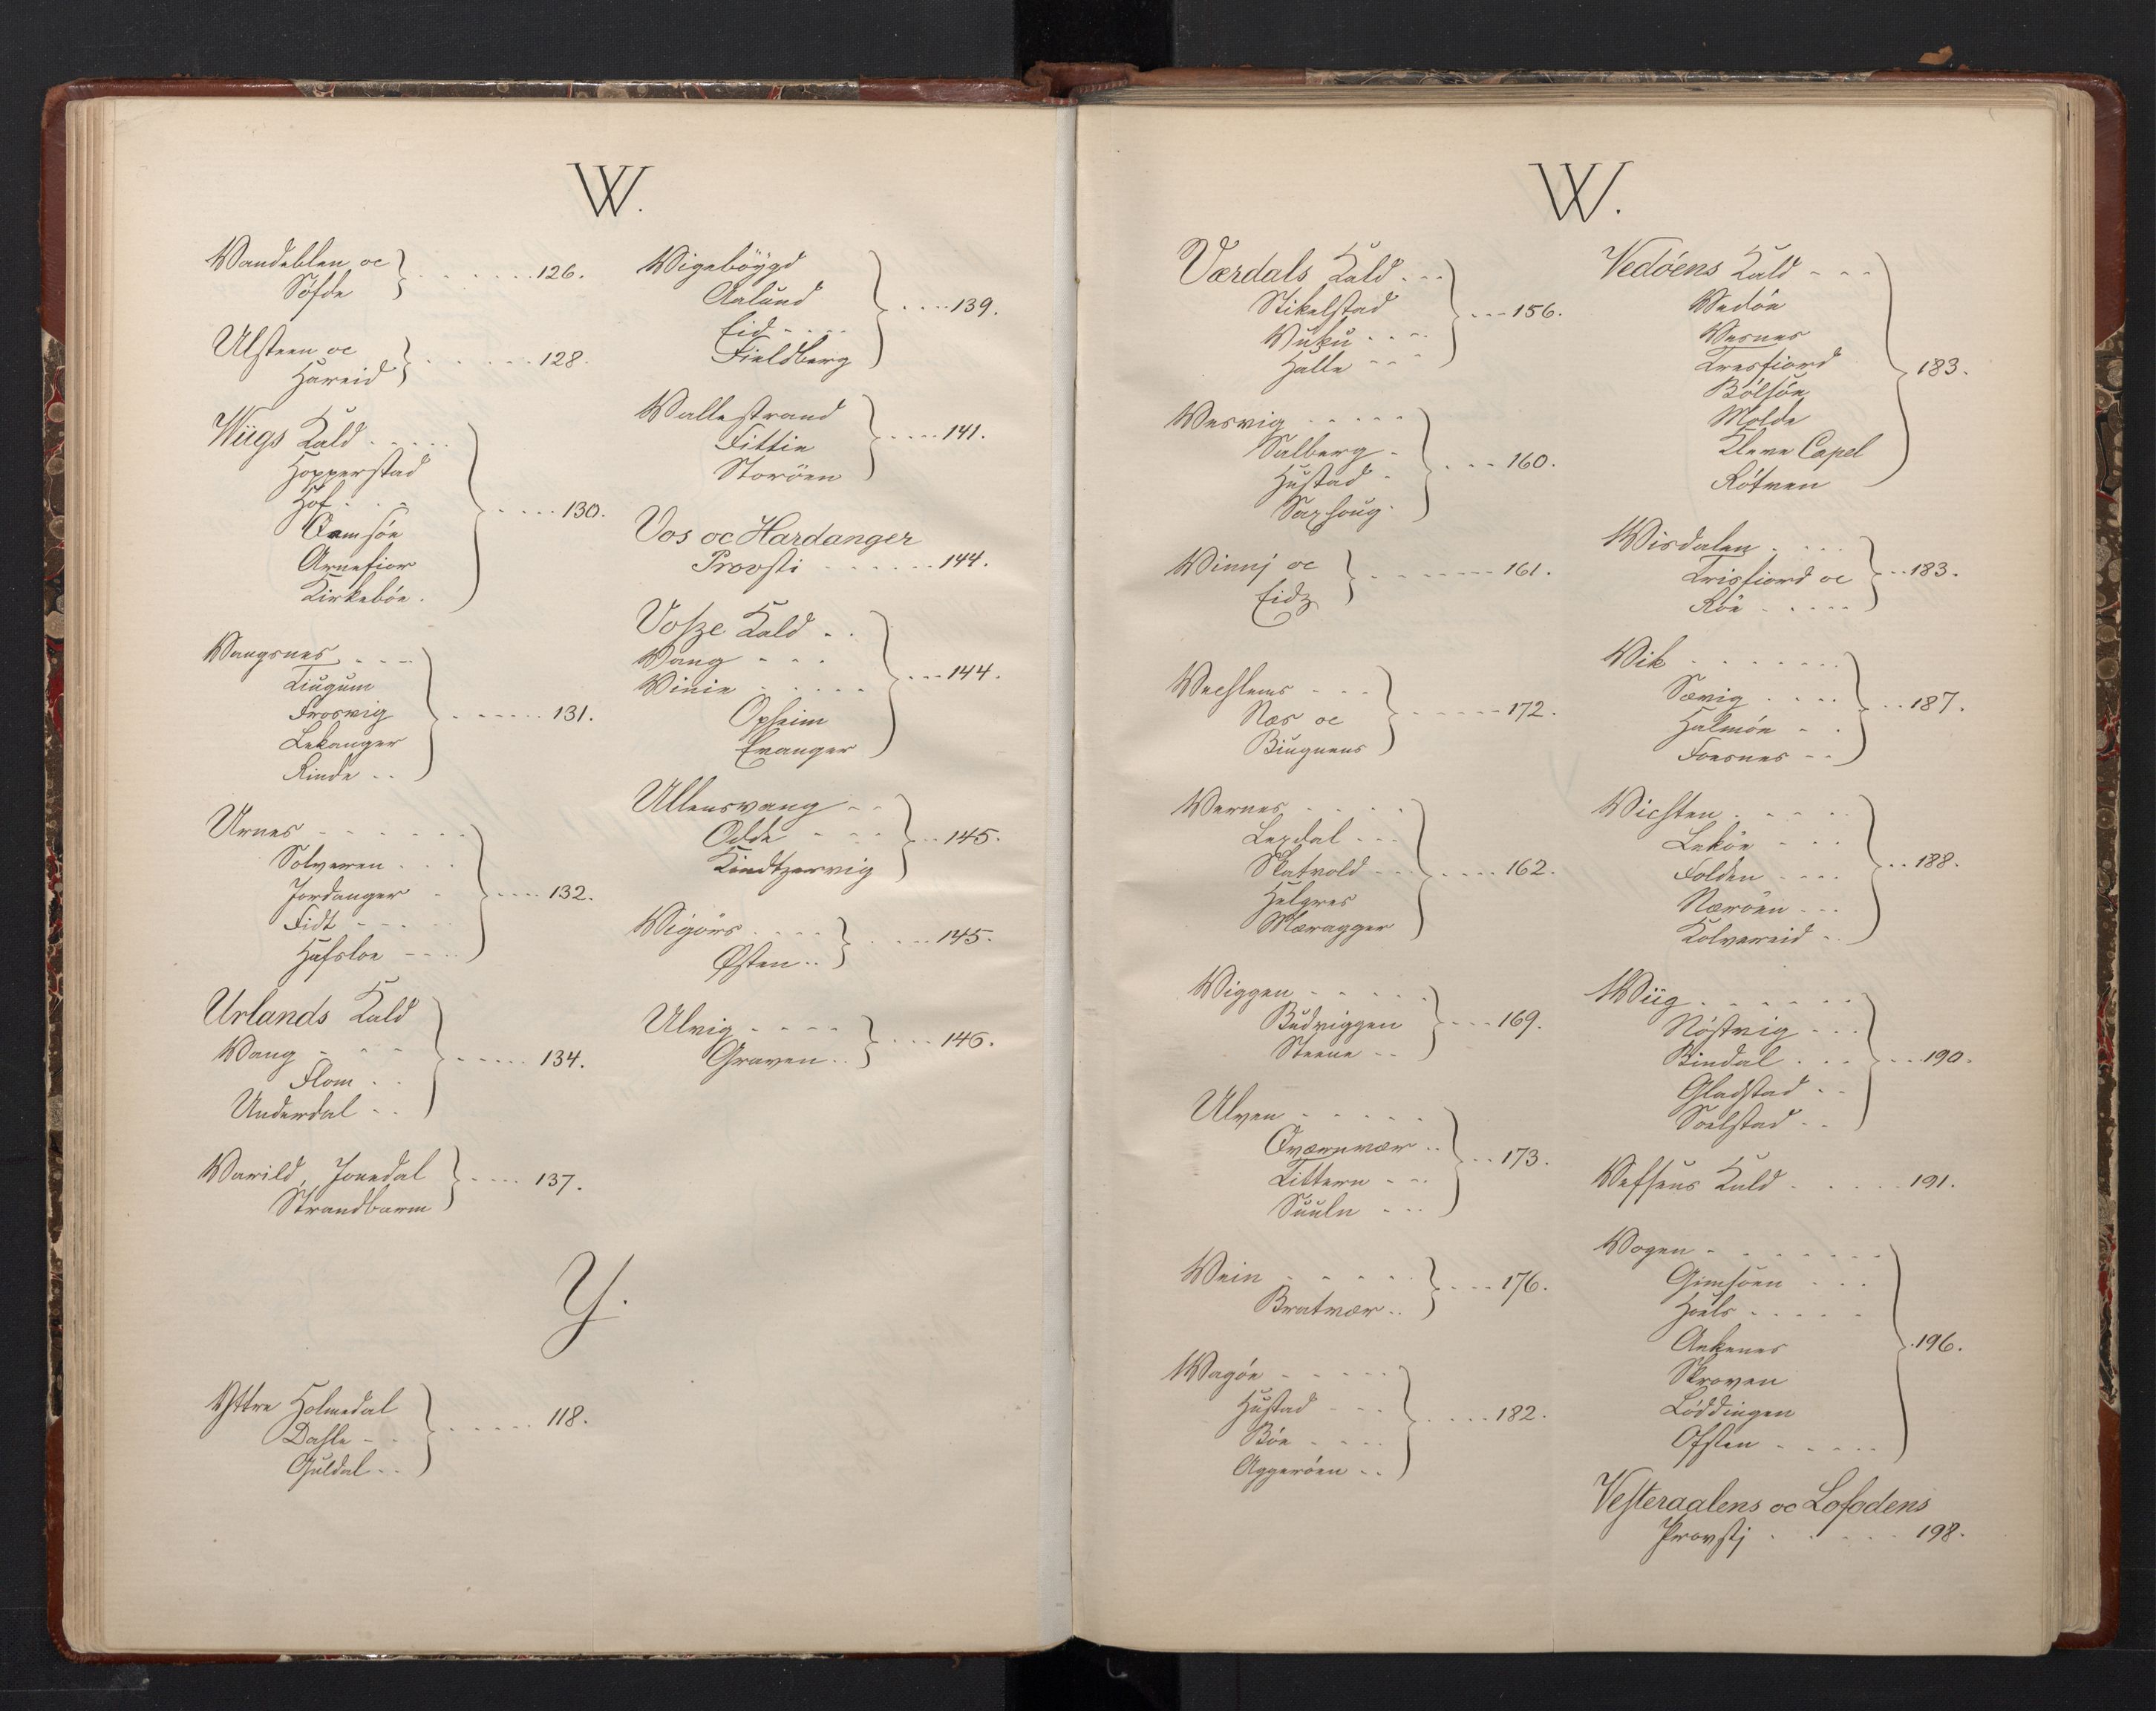 W.
Wandeblen oc
Söfde
126.
Ulsteen oc
Hareid
128.
Wiigs Kald
Hopperstad
Hof
Qvamsöe
Arnefior
Kirkebøe.
130.
Wangsnes
Tiugum
Froswig
Lekanger
Rinde
131.
Urnes
Solveren
Jordanger
Fidt
Hafsloe
132.
Urlands Kald
Wang
Flom
Underdal
134.
Warild, Jonedal
Strandbarm
137.
Y.
Yttre Holmedal
Dahle
Guldal
118.
Wigebøygd
Aalund
Eid
Fieldberg
139.
Wallestrand
Fittie
Storöen
141.
Vos oc Hardanger
Provsti
144.
Vosze Kald
Wang
Winie
Opheim
Evanger
144.
Ullensvang
Odde
Kindtzervig
145.
Wigörs
Østen
145.
Ulvig
Graven
146.
W.
Værdals Kald
Stikelstad
Wuku
Halle
156.
Wesvig
Salberg
Hustad
Saxhoug
160.
Winnj oc
Eidz
161.
Wechlems
Næs oc
Biugnens
172.
Wernes
Lexdal
Skatvold
Helgres
Mæragger
162.
Wiggen
Budviggen
Steene
169.
Ulven
Qværnvær
Titteren
Suuln
173.
Wein
Bratvær
176.
Wagöe
Hustad
Böe
Aggeröen
182.
Vedöens Kald
Wedöe
Wesnes
Tresfiord
Bölsöe
Molde
Kleve Capel
Rötven
183.
Wisdalen
Trisfiord oc
Röe
183.
Wik
Sævig
Halmöe
Foesnes
187.
Wichten
Leköe
Folden
Næröen
Kolvereid
188.
Wiig
Nöstvig
Bindal
Gladstad
Soelstad
190.
Wefsens Kald
191.
Wogen
Gimsöen
Hoels
Ankenes
Skroven
Löddingen
Ofsten
196.
Vesteraalens oc Lofodens
Provstj
198.